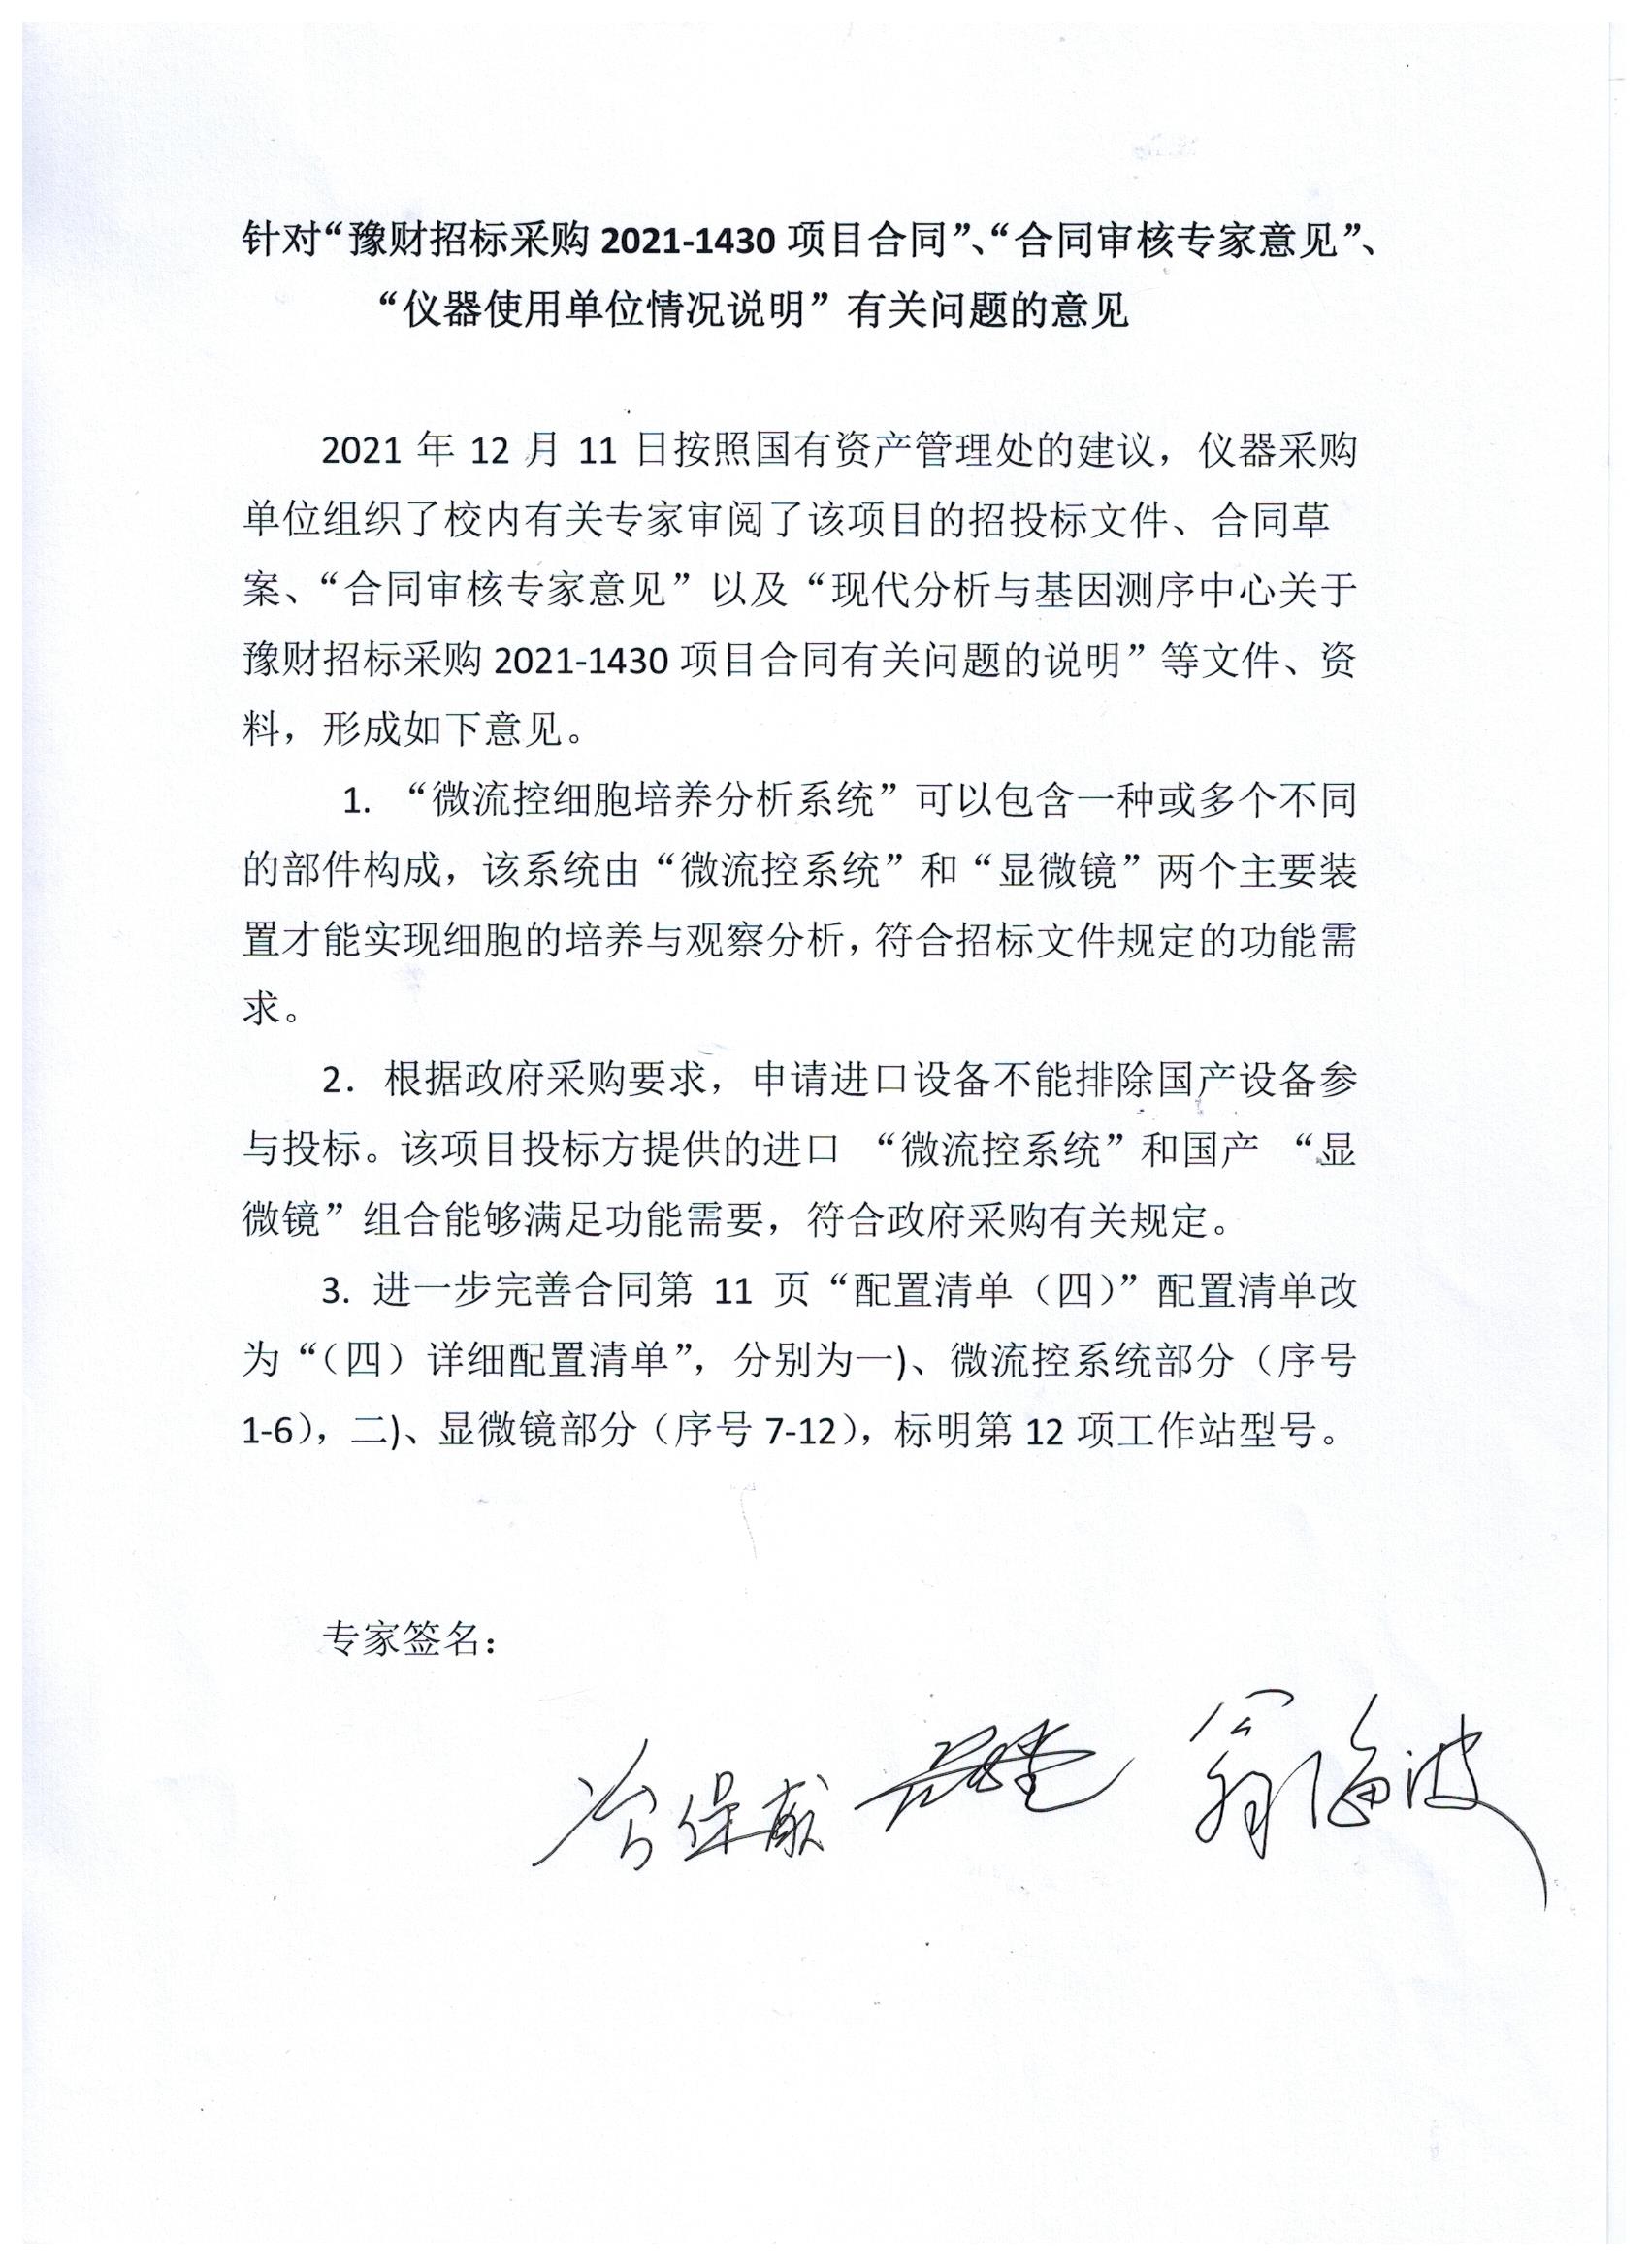 针对“豫财招标采购 2021-1430 项目合同”、“合同审核专家意见”、
“仪器使用单位情况说明”有关问题的意见
2021 年 12 月 11 日按照国有资产管理处的建议，仪器采购
单位组织了校内有关专家审阅了该项目的招投标文件、合同草
案、“合同审核专家意见”以及“现代分析与基因测序中心关于
豫财招标采购 2021-1430 项目合同有关问题的说明”等文件、资
料，形成如下意见。
1. “微流控细胞培养分析系统”可以包含一种或多个不同
的部件构成，该系统由“微流控系统”和“显微镜”两个主要装
置才能实现细胞的培养与观察分析，符合招标文件规定的功能需
求。
2. 根据政府采购要求，申请进口设备不能排除国产设备参
与投标。该项目投标方提供的进口 “微流控系统”和国产 “显
微镜”组合能够满足功能需要，符合政府采购有关规定。
3. 进一步完善合同第 11 页“配置清单（四）”配置清单改
为“（四）详细配置清单”，分别为一)、微流控系统部分（序号
1-6），二)、显微镜部分（序号 7-12），标明第 12 项工作站型号。
专家签名：
翁海波